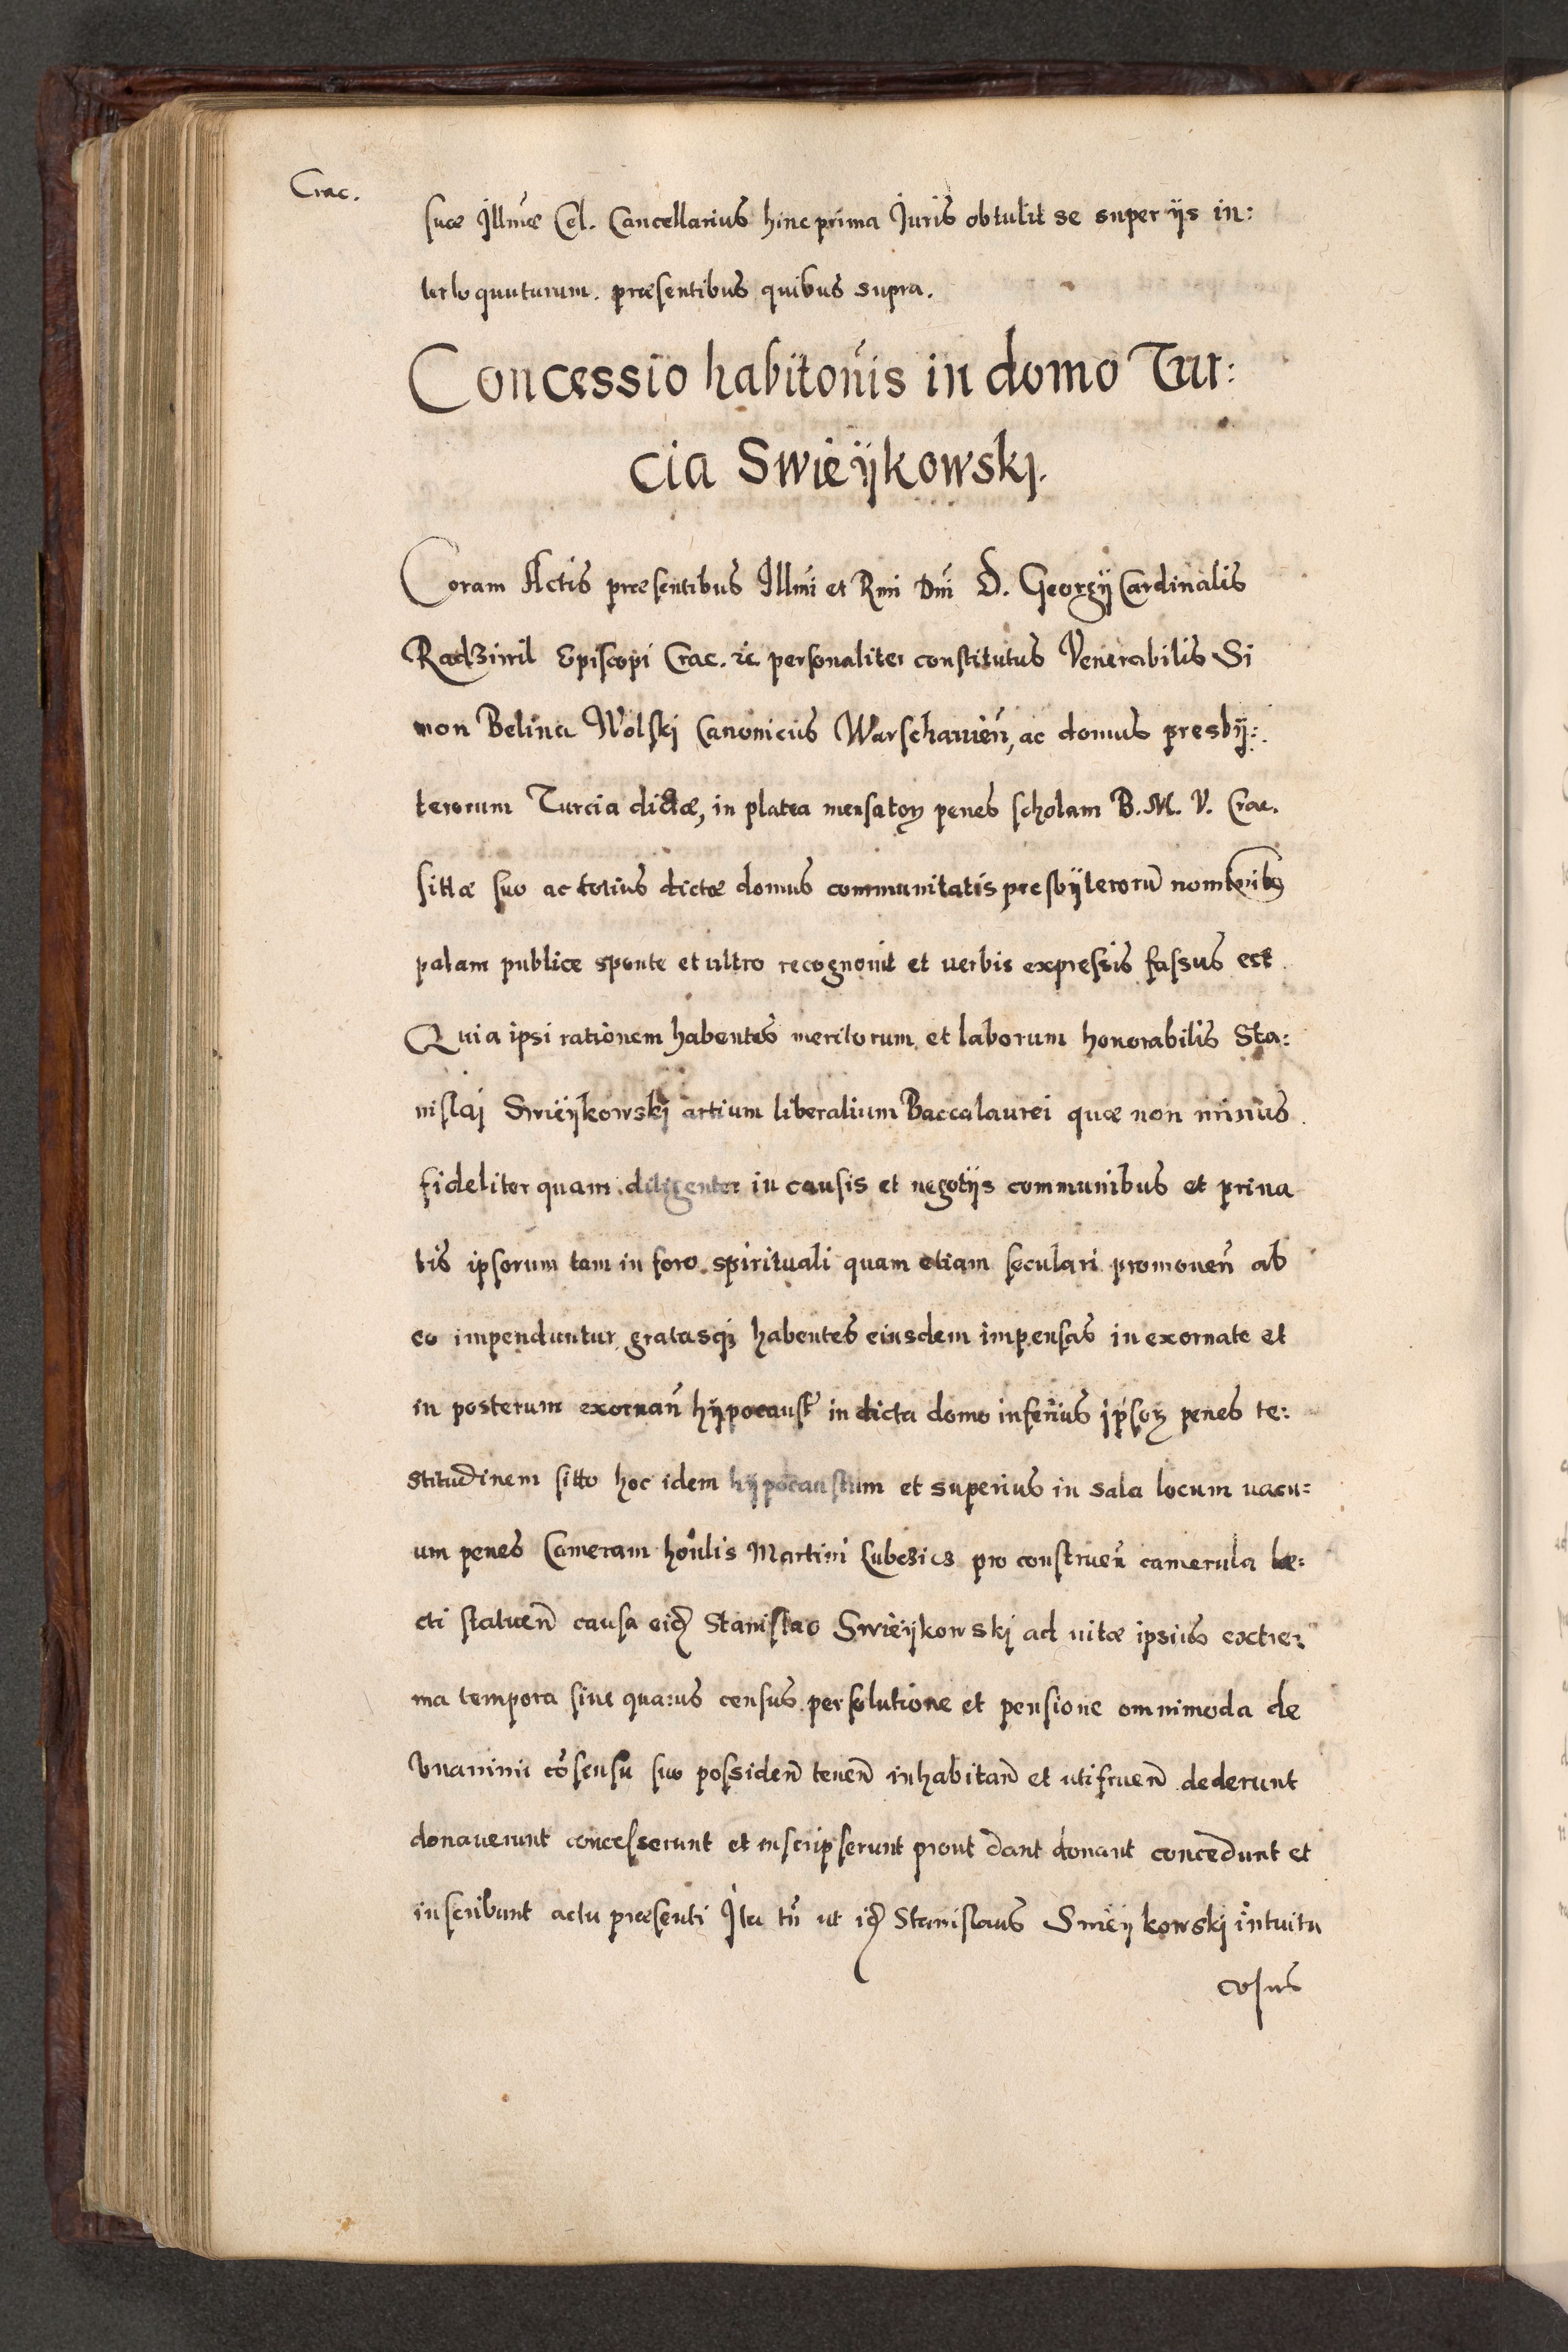 Crac.
suæ Illmæ Cel. Cancellarius hinc prima Juris obtulit se super ijs in:
terloquuturum. præsentibus quibus supra.
Concessio habitoñis in domo Tur:
cia Swieÿkowskj.
Coram Actis præsentibus Illmi et Rmi Dni D. Georgij Cardinalis
Radziwil Episcopi Crac. etc personaliter constitutus Venerabilis Si
mon Belina Wolskj Canonicus Warschauieñ, ac domus presbÿ:
terorum Turcia dictæ, in platea mensatoꝝ penes scholam B. M. V. Crac.
sittæ suo ac totius dictæ domus communitatis presbÿterorũ
palam publice sponte et ultro recognouit et uerbis expressis fassus est
Quia ipsi rationem habentes meritorum et laborum honorabilis Sta:
nislaj Swieÿkowskj artium liberalium Baccalaurei quæ non minus
fideliter quam diligenter in causis et negotijs communibus et priua
tis ipsorum tam in foro spirituali quam etiam seculari promoueñ ab
eo impenduntur gratasqꝫ habentes eiusdem impensas in exornate et
in posterum exornañ hÿpocaust in dicta domo inferius ipsoꝝ penes te:
stitudinem sitto hoc idem hÿpocaustum et superius in sala locum uacu:
um penes Cameram honlis Martini Lubczics pro construeñ camerula le:
cti statueñ causa eidꝫ Stanislao Swieÿkowskj ad uitæ ipsius extre:
ma tempora siue quauis census persolutione et pensione omnimoda de
Vnanimi cõsensu suo possideñ teneñ inhabitañ et utifrueñ dederunt
donauerunt concesserunt et inscripserunt prout dant donant concedunt et
inscribunt actu præsenti Ita tñ ut idꝫ Stanislaus Swieÿkowskj intuitu